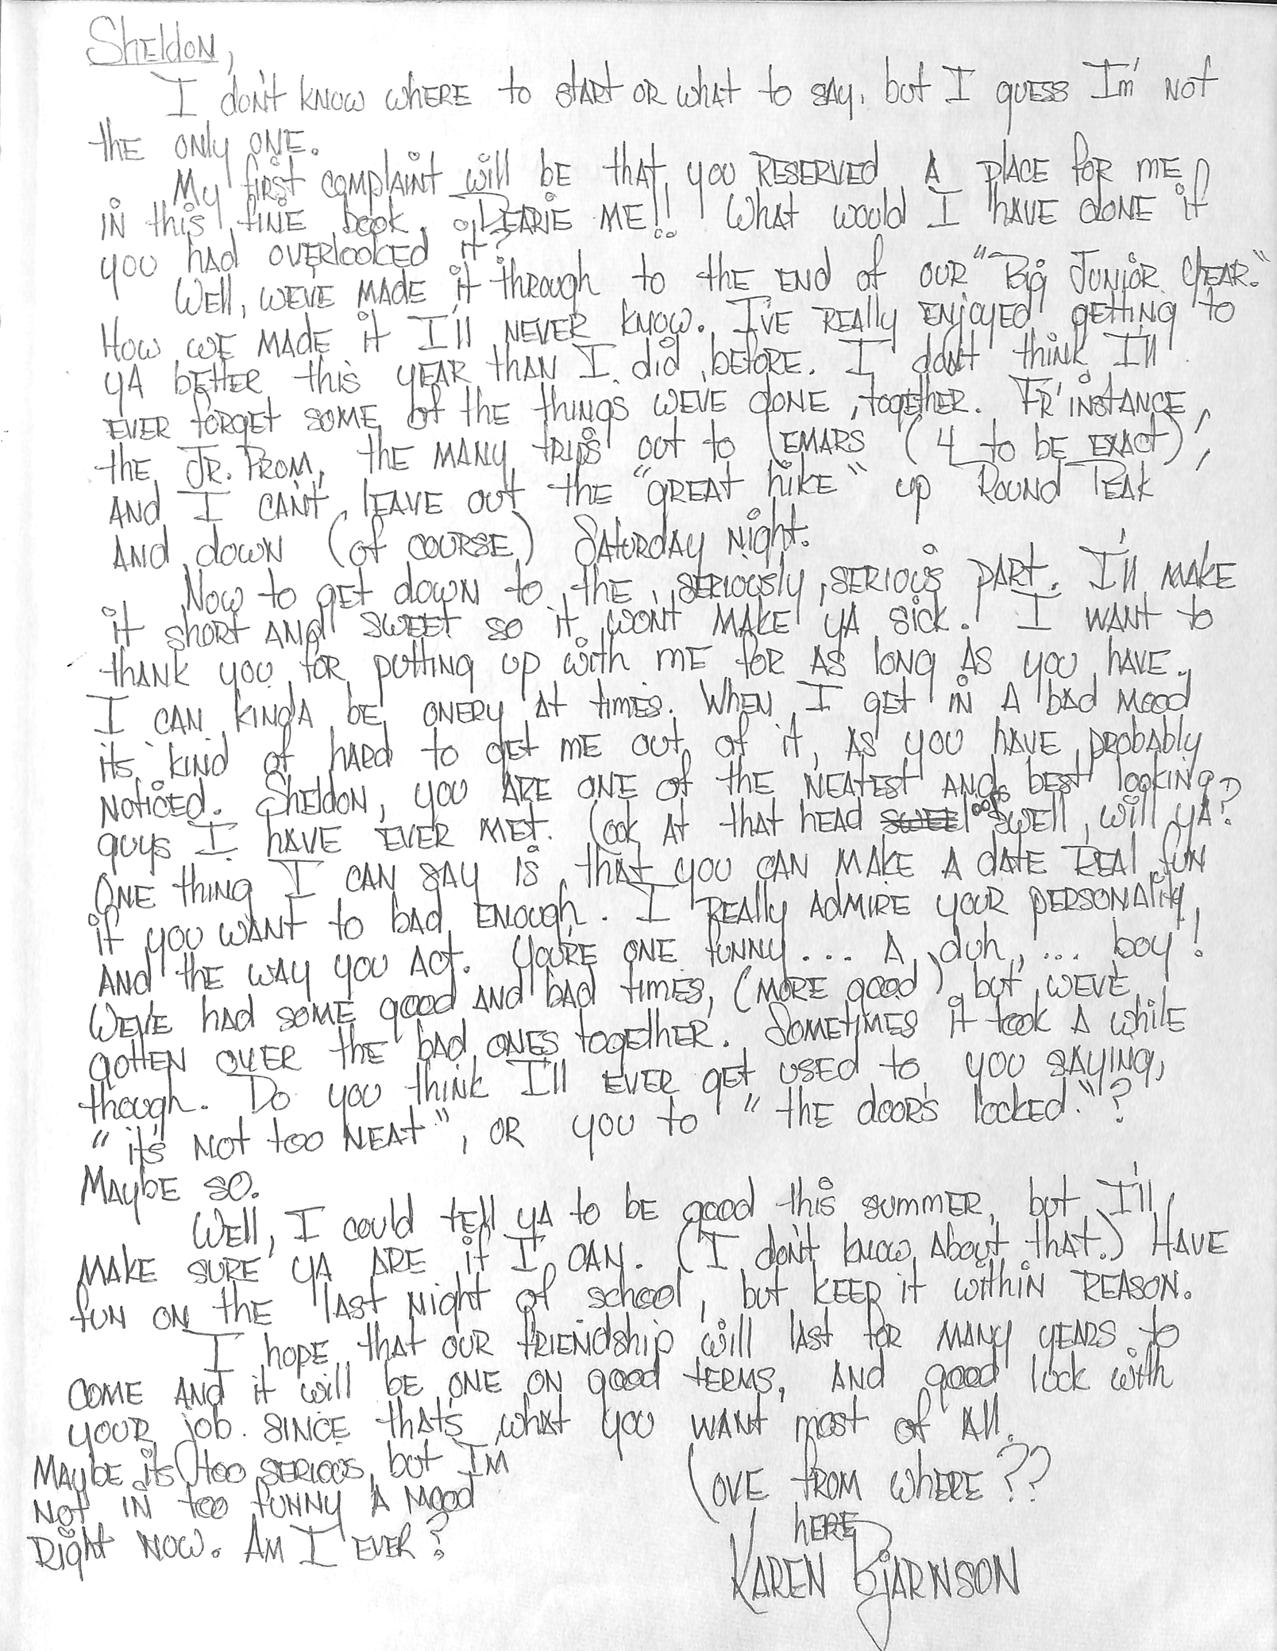 Sheldon,
I don't know where to start or what to say, but I guess I'm not
the only one.
My first complaint will be that you reserved a place for me
in this fine book. Dearie me!! What would I have done if
you had overlooked it?
Well, we've made it through to the end of our "Big Junior Year."
How we made it I'll never know. I've really enjoyed getting to
ya better this year than I did before. I don't think I'll
ever forget some of the things we've done together. Fr'instance,
the Jr. Prom, the many trips out to Lemars (4 to be exact),
and I can't leave out the "great hike" up Round Peak
and down (of course) Saturday night.
Now to get down to the seriously, serious part. I'll make
it short and sweet so it won't make ya sick. I want to
thank you for putting up with me for as long as you have.
I can kinda be onery at times. When I get in a bad mood
its kind of hard to get me out of it, as you have probably
noticed. Sheldon, you are one of the neatest and best looking
guys I have ever met. Look at that head swee oops swell, will ya?
One thing I can say is that you can make a date real fun
if you want to bad enough. I really admire your personality
and the way you act. You're one funny... a, duh,... boy!
We've had some good and bad times, (more good) but we've
gotten over the bad ones together. Sometimes it took a while
though. Do you think I'll ever get used to you saying,
"it's not too neat", or you to "the door's locked."?
Maybe so.
Well, I could tell ya to be good this summer, but I'll
make sure ya are if I can. (I don't know about that.) Have
fun on the last night of school, but keep it within reason.
I hope that our friendship will last for many years to
come and it will be one on good terms, and good luck with
your job. Since that's what you want most of all.
Maybe its too serious, but I'm
not in too funny a mood
right now. Am I ever?
Love from where??
here
Karen Bjarnson